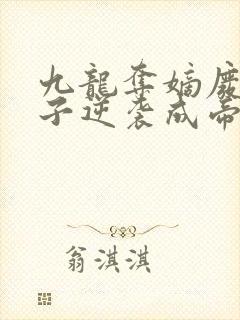 九龍奪嫡廢
子逆袭成帝
翁淇淇